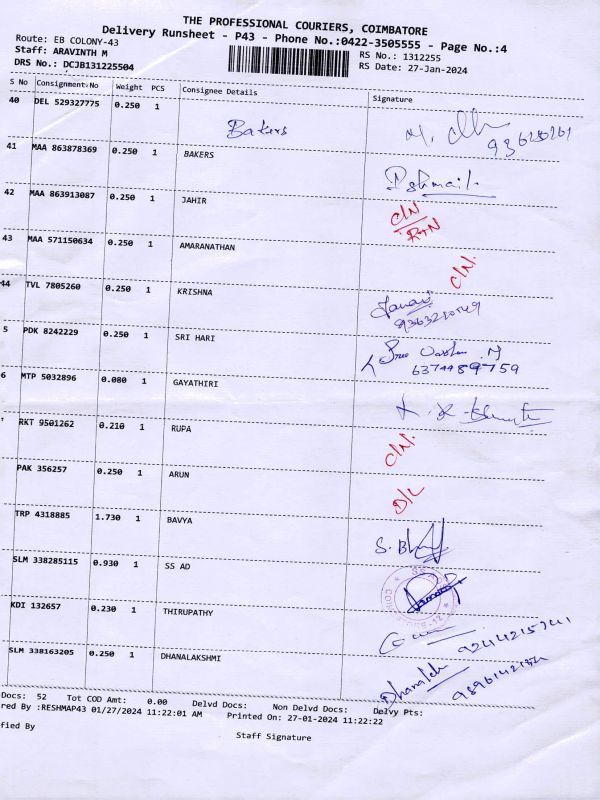 THE PROFESSIONAL COURIERS, COIMBATORE
Delivery Runsheet - P43 - Phone No.:0422-3505555 - Page No.:4
Route: EB COLONY-43 RS No.: 1312255
Staff: ARAVINTH M RS Date: 27-Jan-2024
DRS No.: DCJB131225504
S No Consignment No Weight PCS Consignee Details Signature
40 DEL 529327775 0.250 1
Bakers
41 MAA 863878369 0.250 1 BAKERS
42 MAA 863913087 0.250 1 JAHIR C/N
RTN
43 MAA 571150634 0.250 1 AMARANATHAN C/N.
44 TVL 7805260 0.250 1 KRISHNA
5 PDK 8242229 0.250 1 SRI HARI
6374489759
6 MTP 5032896 0.080 1 GAYATHIRI
RKT 9501262 0.210 1 RUPA C/N.
PAK 356257 0.250 1 ARUN D/L
TRP 4318885 1.730 1 BAVYA
SLM 338285115 0.930 1 SS AD
KDI 132657 0.230 1 THIRUPATHY
SLM 338163205 0.250 1 DHANALAKSHMI
Docs: 52 Tot COD Amt: 0.00 Delvd Docs: Non Delvd Docs: Delvy Pts:
red By :RESHMAP43 01/27/2024 11:22:01 AM Printed On: 27-01-2024 11:22:22
fied By Staff Signature